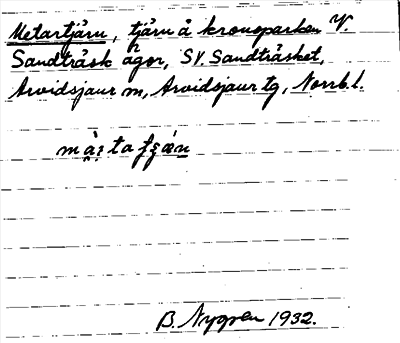 Metartjärn, tjärn å kronoparken V.
Sandträsk ägor, SV. Sandträsket,
Arvidsjaur m, Arvidsjaur tg, Norrb. l.
B. Nygren 1932.